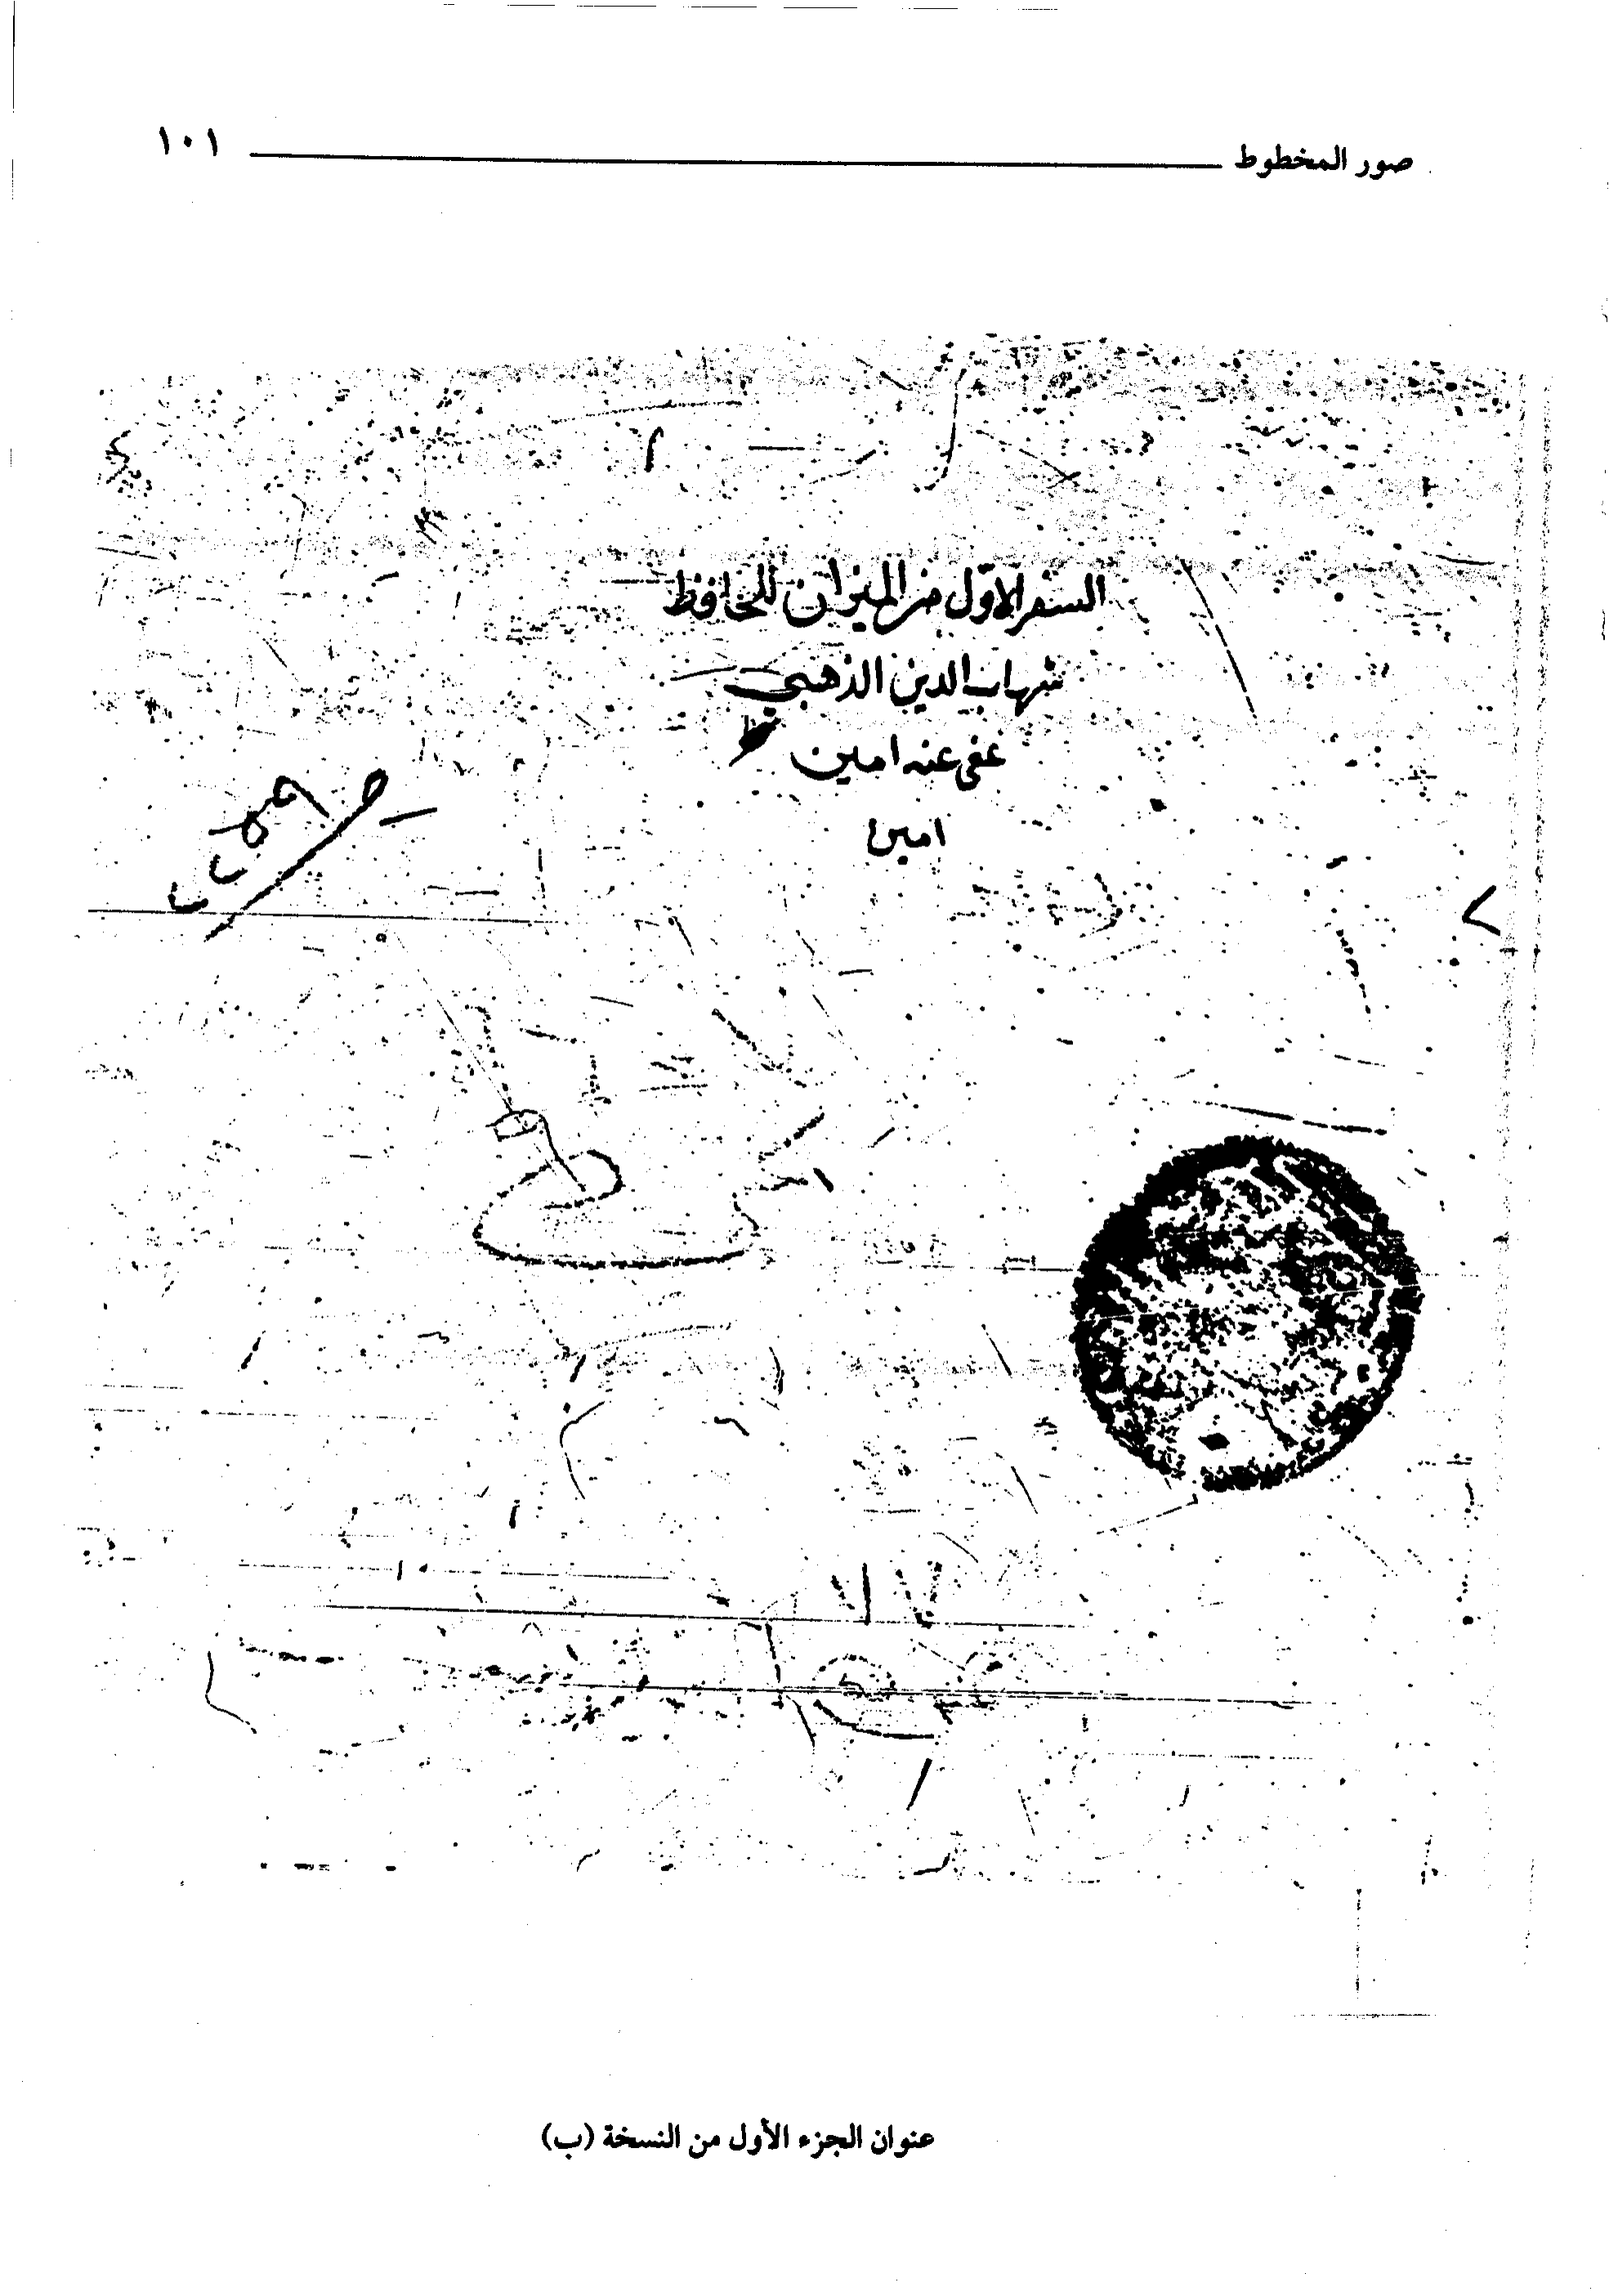 صور المخطوط ١٠١
السفر الاول من الميزان للحافظ
شهاب الدين الذهبي
عفى عنه امين
امين
عنوان الجزء الأول من النسخة (ب)